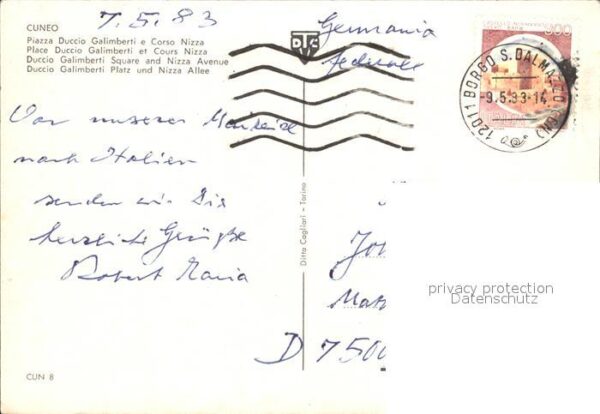 7.5.83
CUNEO
Piazza Duccio Galimberti e Corso Nizza
Place Duccio Galimberti et Cours Nizza
Duccio Galimberti Square and Nizza Avenue
Duccio Galimberti Platz und Nizza Allee
Germania
federale
DTC
600
12011 BORGO S. DALMAZZO (CN)
-9.5.83-14
Von unserer
nach Italien
senden wir Die
herzliche Grüße
Robert Maria
Ditta Cagliari - Torino
D 7500
privacy protection
Datenschutz
CUN 8